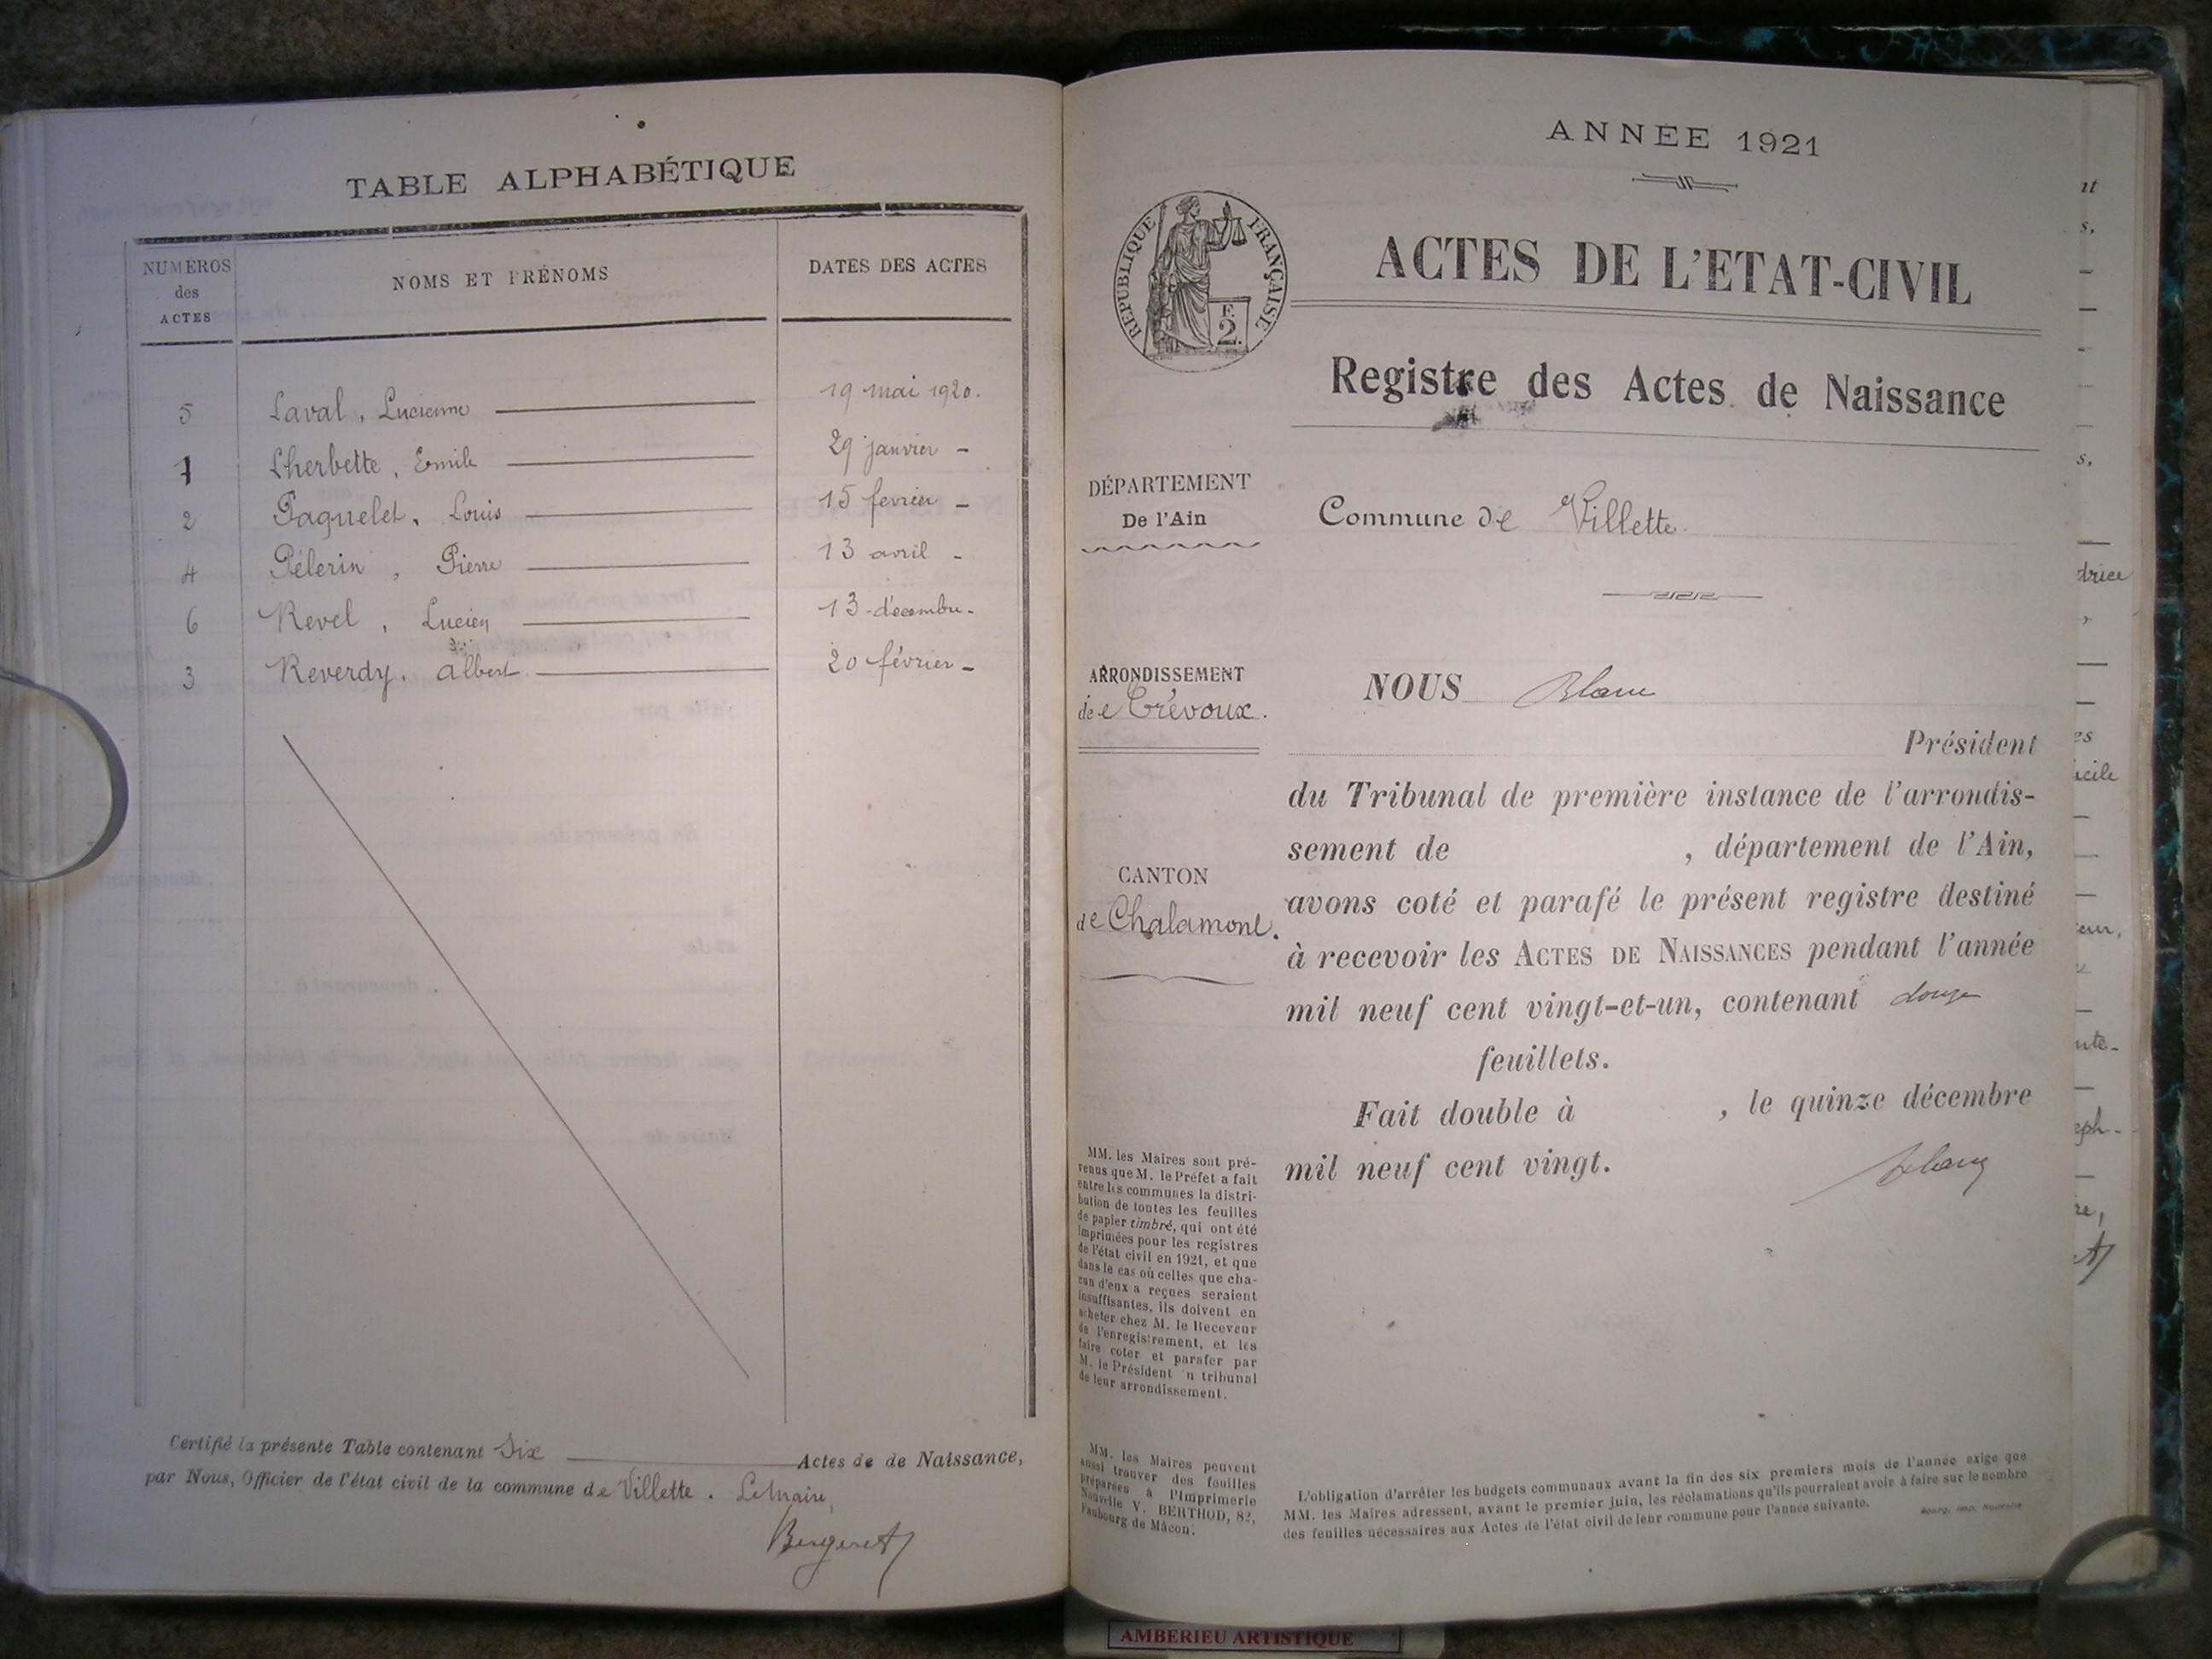 TABLE ALPHABÉTIQUE
NUMÉROS des ACTES
NOMS ET PRÉNOMS
DATES DES ACTES
5 Laval, Lucienne 19 mai 1920.
1 Lherbette, Emile 29 janvier -
2 Paquelet, Louis 15 fevrier -
4 Pélerin, Pierre 13 avril -
6 Revel, Lucien 13 décembre -
3 Reverdy, Albert 20 février -
Certifié la présente Table contenant Six Actes de de Naissance,
par Nous, Officier de l'état civil de la commune de Villette. Le Maire,
Bergeret
ANNÉE 1921
RÉPUBLIQUE FRANÇAISE
F.
2.
ACTES DE L'ETAT-CIVIL
Registre des Actes de Naissance
DÉPARTEMENT
De l'Ain
Commune de Villette.
ARRONDISSEMENT
de Trévoux.
CANTON
de Chalamont.
NOUS Blanc
Président
du Tribunal de première instance de l'arrondis-
sement de , département de l'Ain,
avons coté et parafé le présent registre destiné
à recevoir les ACTES DE NAISSANCES pendant l'année
mil neuf cent vingt-et-un, contenant douze
feuillets.
Fait double à , le quinze décembre
mil neuf cent vingt.
Blanc
MM. les Maires sont pré-
venus que M. le Préfet a fait
entre les communes la distri-
bution de toutes les feuilles
de papier timbré, qui ont été
imprimées pour les registres
de l'état civil en 1921, et que
dans le cas où celles que cha-
cun d'eux a reçues seraient
insuffisantes, ils doivent en
acheter chez M. le Receveur
de l'enregistrement, et les
faire coter et parafer par
M. le Président u tribunal
de leur arrondissement.
MM. les Maires peuvent
aussi trouver des feuilles
préparées à l'Imprimerie
Nouvelle V. BERTHOD, 82,
Faubourg de Mâcon.
L'obligation d'arrêter les budgets communaux avant la fin des six premiers mois de l'année exige que
MM. les Maires adressent, avant le premier juin, les réclamations qu'ils pourraient avoir à faire sur le nombre
des feuilles nécessaires aux Actes de l'état civil de leur commune pour l'année suivante.
AMBERIEU ARTISTIQUE